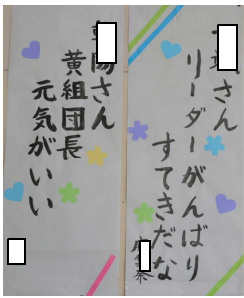 さん
リーダーがんばり
すてきだな
陽さん
黄組団長
元気がいい